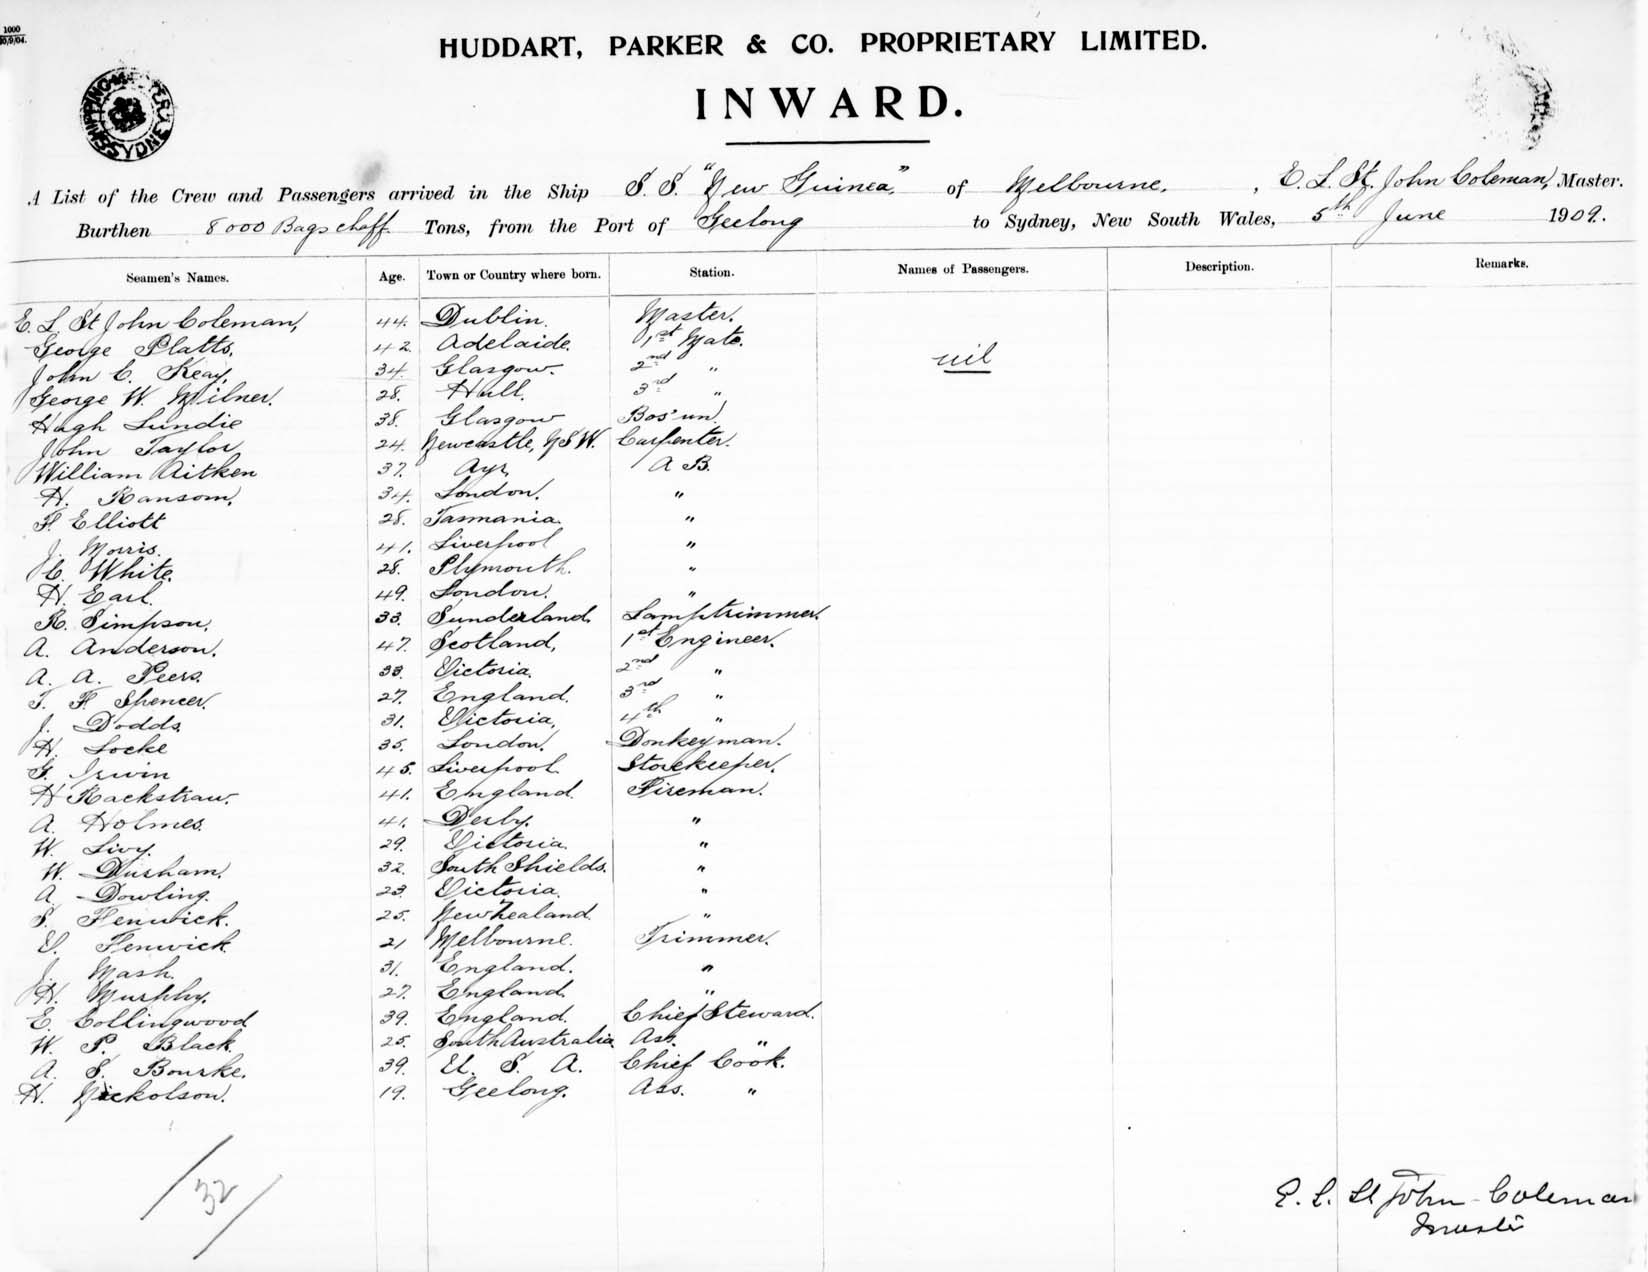 1000
10/9/04.
HUDDART, PARKER & CO. PROPRIETARY LIMITED.
INWARD.
SHIPPING MASTER SYDNEY
A List of the Crew and Passengers arrived in the Ship S. S. "New Guinea," of Melbourne, , E. L. St. John Coleman, Master.
Burthen 8000 Bags chaff Tons, from the Port of Geelong to Sydney, New South Wales, 5th June 1909.
Seamen's Names. Age. Town or Country where born. Station. Names of Passengers. Description. Remarks.
E. L. St John Coleman, 44. Dublin. Master.
George Platts. 42. Adelaide. 1st Mate.
nil
John C. Keay, 34. Glasgow. 2nd "
George W. Milner. 28. Hull. 3rd "
Hugh Lundie 38. Glasgow Bos'un.
John Taylor 24. Newcastle, NSW. Carpenter.
William Aitken 37. Ayr, A B.
H. Ransom, 34. London. "
F. Elliott 28. Tasmania. "
J. Morris. 41. Liverpool "
C. White. 28. Plymouth. "
H. Earl. 49. London. "
R. Simpson, 33. Sunderland. Lamptrimmer.
A. Anderson. 47. Scotland, 1st Engineer.
A. A. Peers. 33. Victoria. 2nd "
T. F. Spencer. 27. England. 3rd "
J. Dodds. 31. Victoria, 4th "
H. Locke 35. London. Donkeyman.
G. Irwin 45. Liverpool. Storekeeper.
H Rackstraw. 41. England. Fireman.
A. Holmes. 41. Derby. "
W. Livy. 29. Victoria. "
W. Durham. 32. South Shields. "
A. Dowling. 23. Victoria. "
S. Fenwick. 25. New Zealand. "
V. Fenwick. 21 Melbourne. Trimmer.
J. Mash. 31. England. "
H. Murphy. 27. England. "
E. Collingwood 39. England. Chief Steward.
W. P. Black. 25. South Australia Ass. "
A. S. Bourke. 39. U. S. A. Chief Cook.
H. Nickolson. 19. Geelong. Ass. "
/32/
E. L. St John Coleman
Master